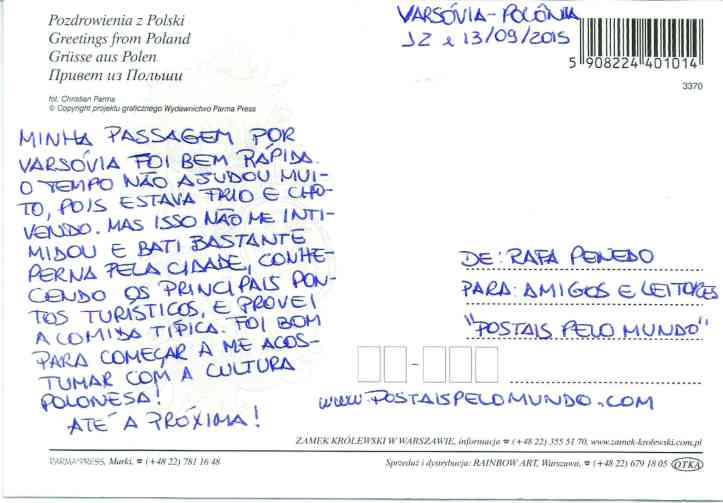 Pozdrowienia z Polski
Greetings from Poland
Grüsse aus Polen
Привет из Польши
fot. Christian Parma
© Copyright projektu graficznego Wydawnictwo Parma Press
VARSÓVIA - POLÔNIA
12 e 13/09/2015
5 908224 401014
3370
MINHA PASSAGEM POR
VARSÓVIA FOI BEM RÁPIDA.
O TEMPO NÃO AJUDOU MUI-
TO, POIS ESTAVA FRIO E CHO-
VENDO. MAS ISSO NÃO ME INTI-
MIDOU E BATI BASTANTE
PERNA PELA CIDADE, CONHE-
CENDO OS PRINCIPAIS PON-
TOS TURÍSTICOS, E PROVEI
A COMIDA TÍPICA. FOI BOM
PARA COMEÇAR A ME ACOS-
TUMAR COM A CULTURA
POLONESA!
ATÉ A PRÓXIMA!
DE: RAFA PENEDO
PARA: AMIGOS E LEITORES
"POSTAIS PELO MUNDO"
www.POSTAISPELOMUNDO.COM
ZAMEK KRÓLEWSKI W WARSZAWIE, informacja ☎ (+48 22) 355 51 70, www.zamek-krolewski.com.pl
PARMA PRESS, Marki, ☎ (+48 22) 781 16 48
Sprzedaż i dystrybucja: RAINBOW ART, Warszawa, ☎ (+48 22) 679 18 05 OTKA